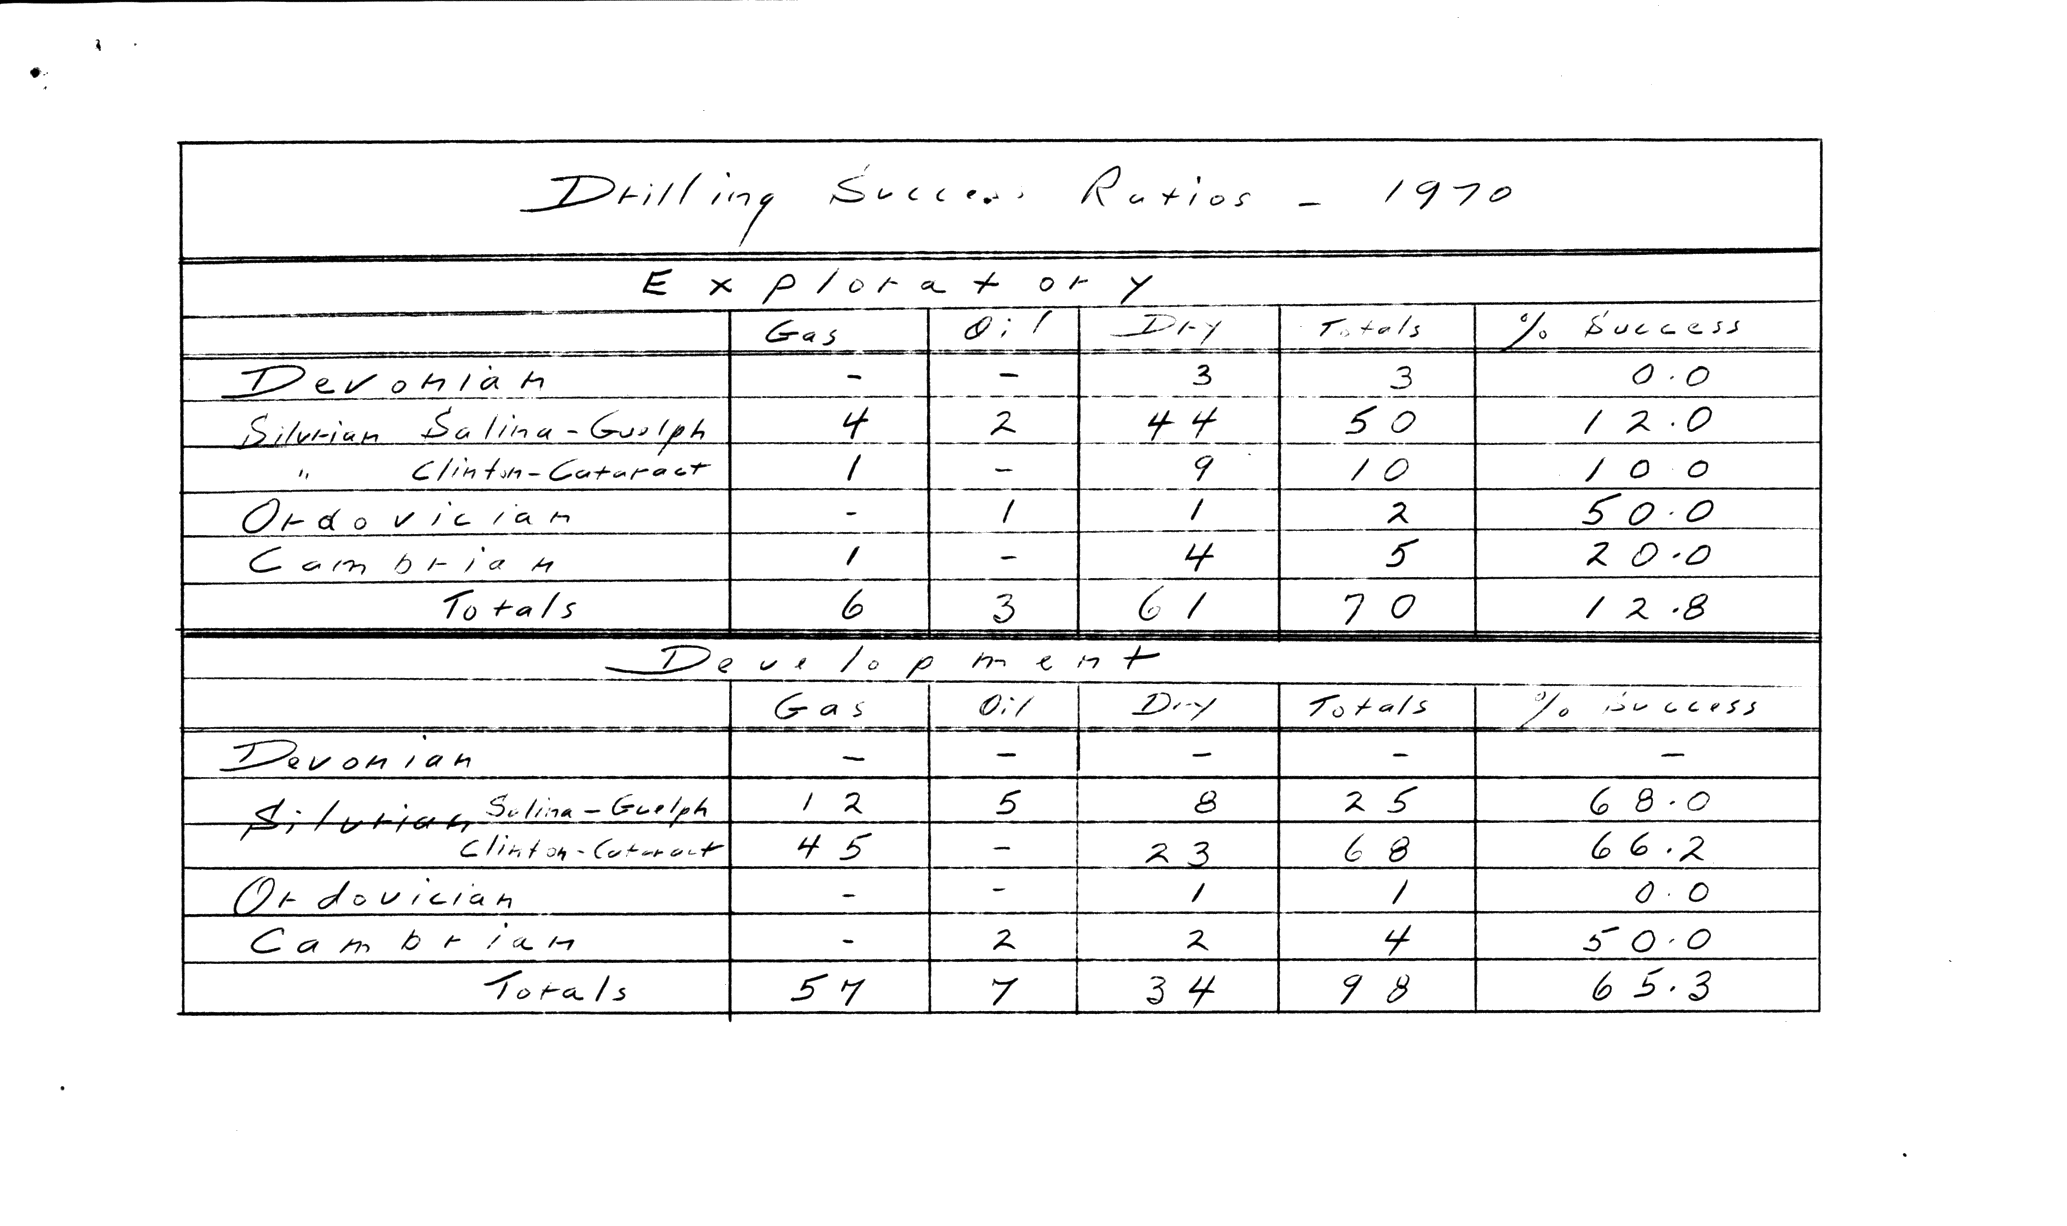 Drilling Success Ratios - 1970
Exploratory
Gas Oil Dry Totals % Success
Devonian - - 3 3 0.0
Silurian Salina-Guelph 4 2 44 50 12.0
" Clinton-Cataract 1 - 9 10 10 0
Ordovician - 1 1 2 50.0
Cambrian 1 - 4 5 20.0
Totals 6 3 61 70 12.8
Development
Gas Oil Dry Totals % Success
Devonian - - - - -
Silurian Salina-Guelph 12 5 8 25 68.0
Clinton-Cataract 45 - 23 68 66.2
Ordovician - - 1 1 0.0
Cambrian - 2 2 4 50.0
Totals 57 7 34 98 65.3